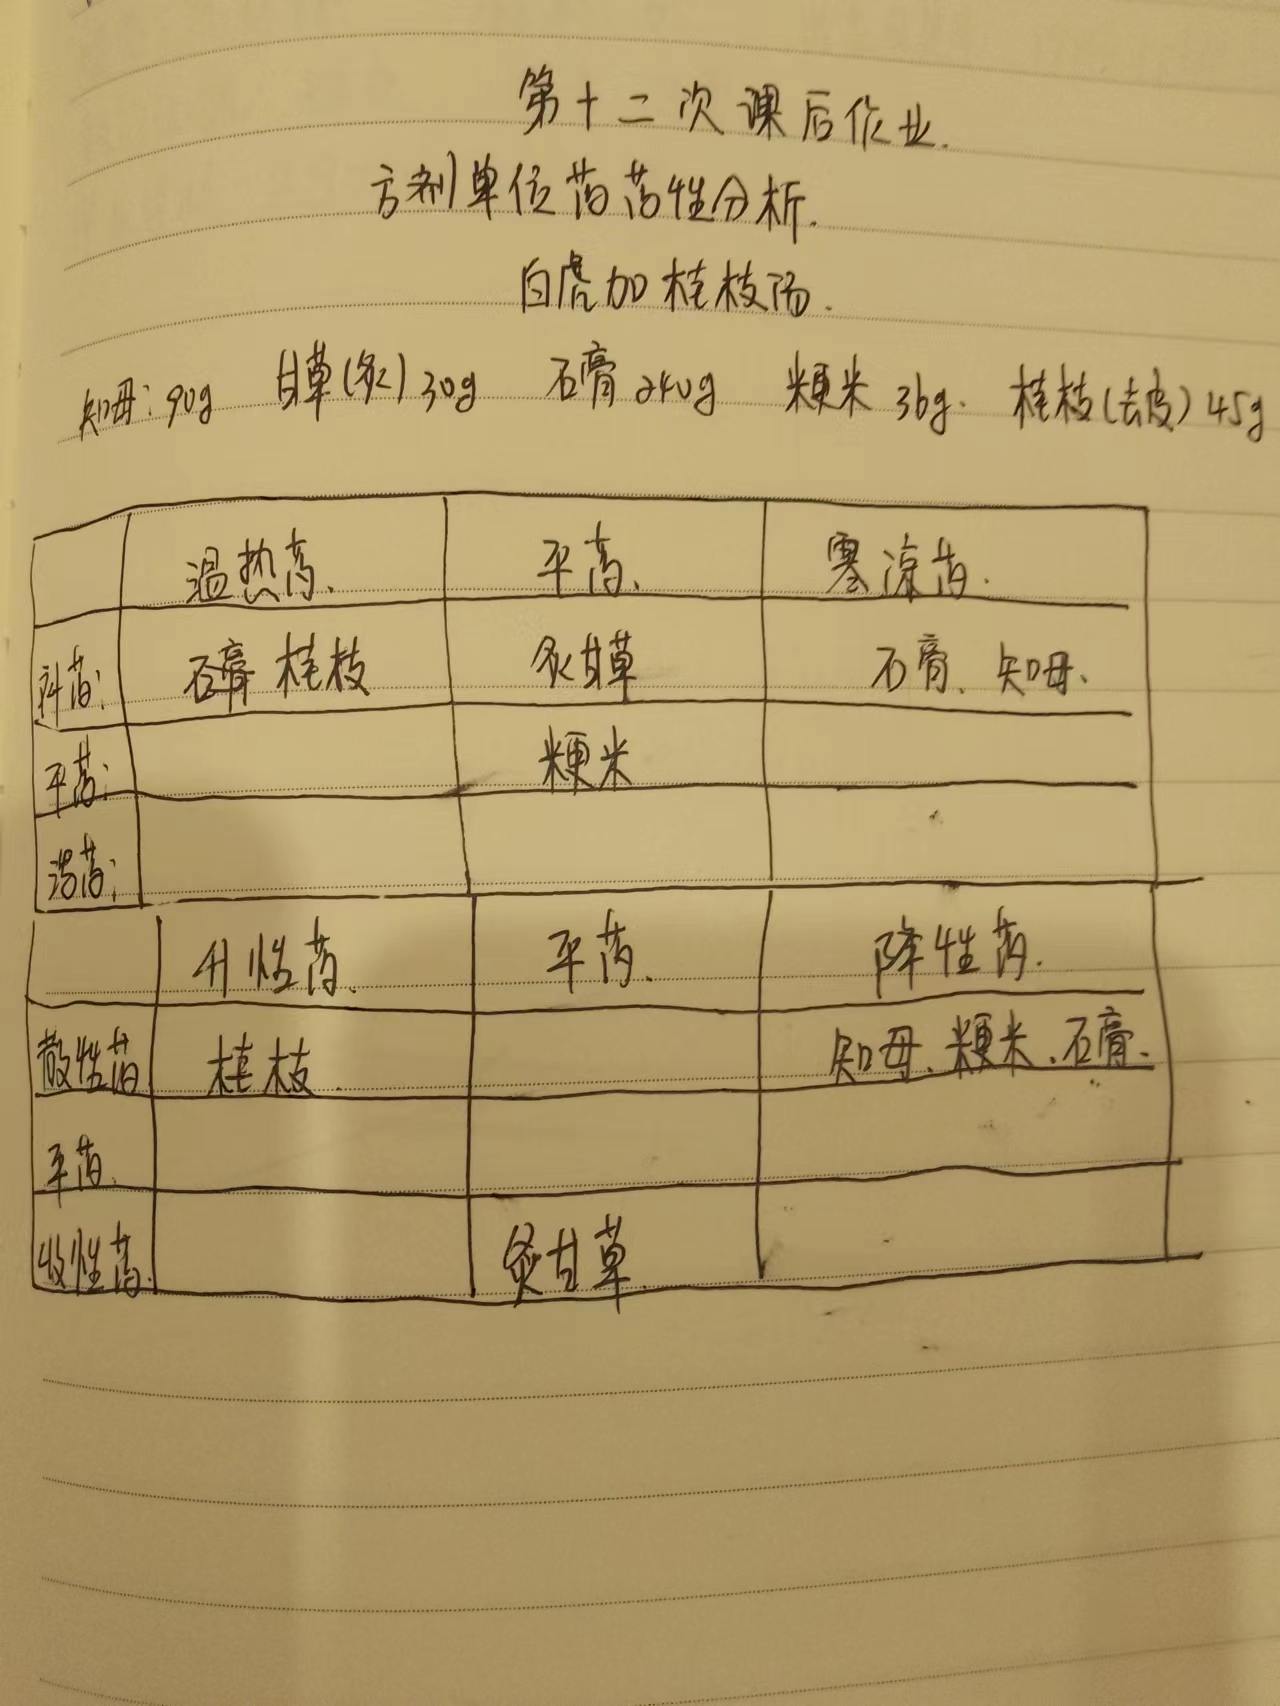 第十二次课后作业.
方剂单位药药性分析.
白虎加桂枝汤.
知母:90g 甘草(炙)30g 石膏240g 粳米36g. 桂枝(去皮)45g
温热药. 平药. 寒凉药.
补药: 石膏 桂枝 炙甘草 石膏、知母.
平药: 粳米
泻药:
升性药. 平药. 降性药.
散性药 桂枝. 知母、粳米、石膏.
平药.
收性药. 炙甘草.